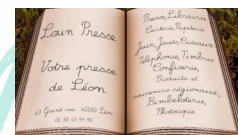 Laun Presse
Votre presse
de Léon
63 Grand rue 40550 Léon
05 58 43 91 95
Presse, Librairie
Carterie, Papeterie
Jeux, Jouets, Cadeaux
Téléphonie, Timbres
Confiserie,
Produits et
souvenirs régionaux,
Bimbeloterie,
Photocopie